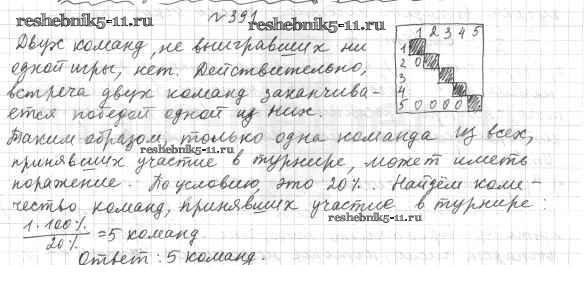 №391
reshebnik5-11.ru
Двух команд, не выигравших ни
одной игры, нет. Действительно,
встреча двух команд заканчива-
ется победой одной из них.
1 2 3 4 5
1
2 0
3
4
5 0 0 0 0
reshebnik5-11.ru
Таким образом, только одна команда из всех,
принявших участие в турнире, может иметь
поражение. По условию, это 20%. Найдём коли-
чество команд, принявших участие в турнире:
reshebnik5-11.ru
1·100%
20%
=5 команд.
Ответ: 5 команд.
reshebnik5-11.ru